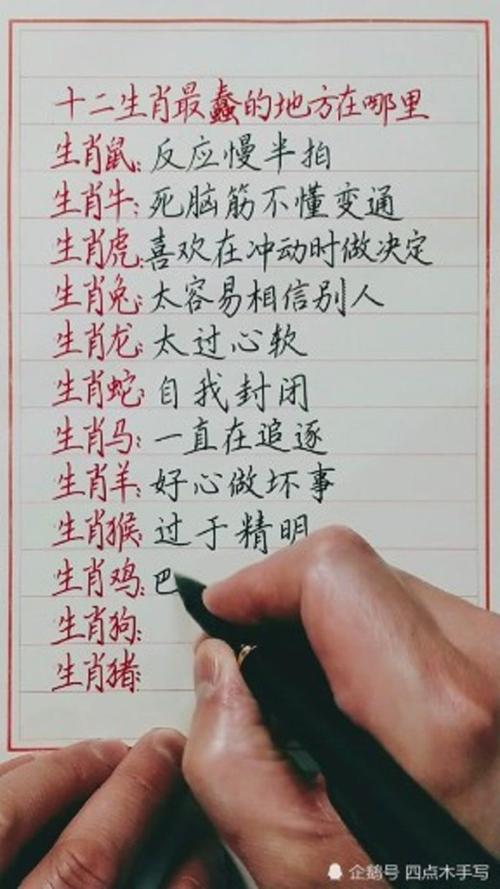 十二生肖最蠢的地方在哪里
生肖鼠:反应慢半拍
生肖牛:死脑筋不懂变通
生肖虎:喜欢在冲动时做决定
生肖兔:太容易相信别人
生肖龙:太过心软
生肖蛇:自我封闭
生肖马:一直在追逐
生肖羊:好心做坏事
生肖猴:过于精明
生肖鸡:巴
生肖狗:
生肖猪:
企鹅号 四点木手写